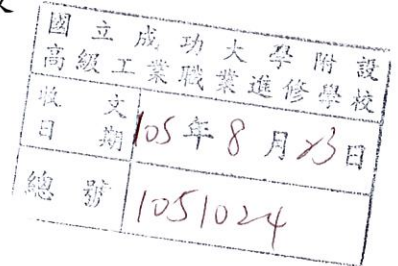 國立成功大學附設
高級工業職業進修學校
收文日期 105年8月23日
總號 1051024